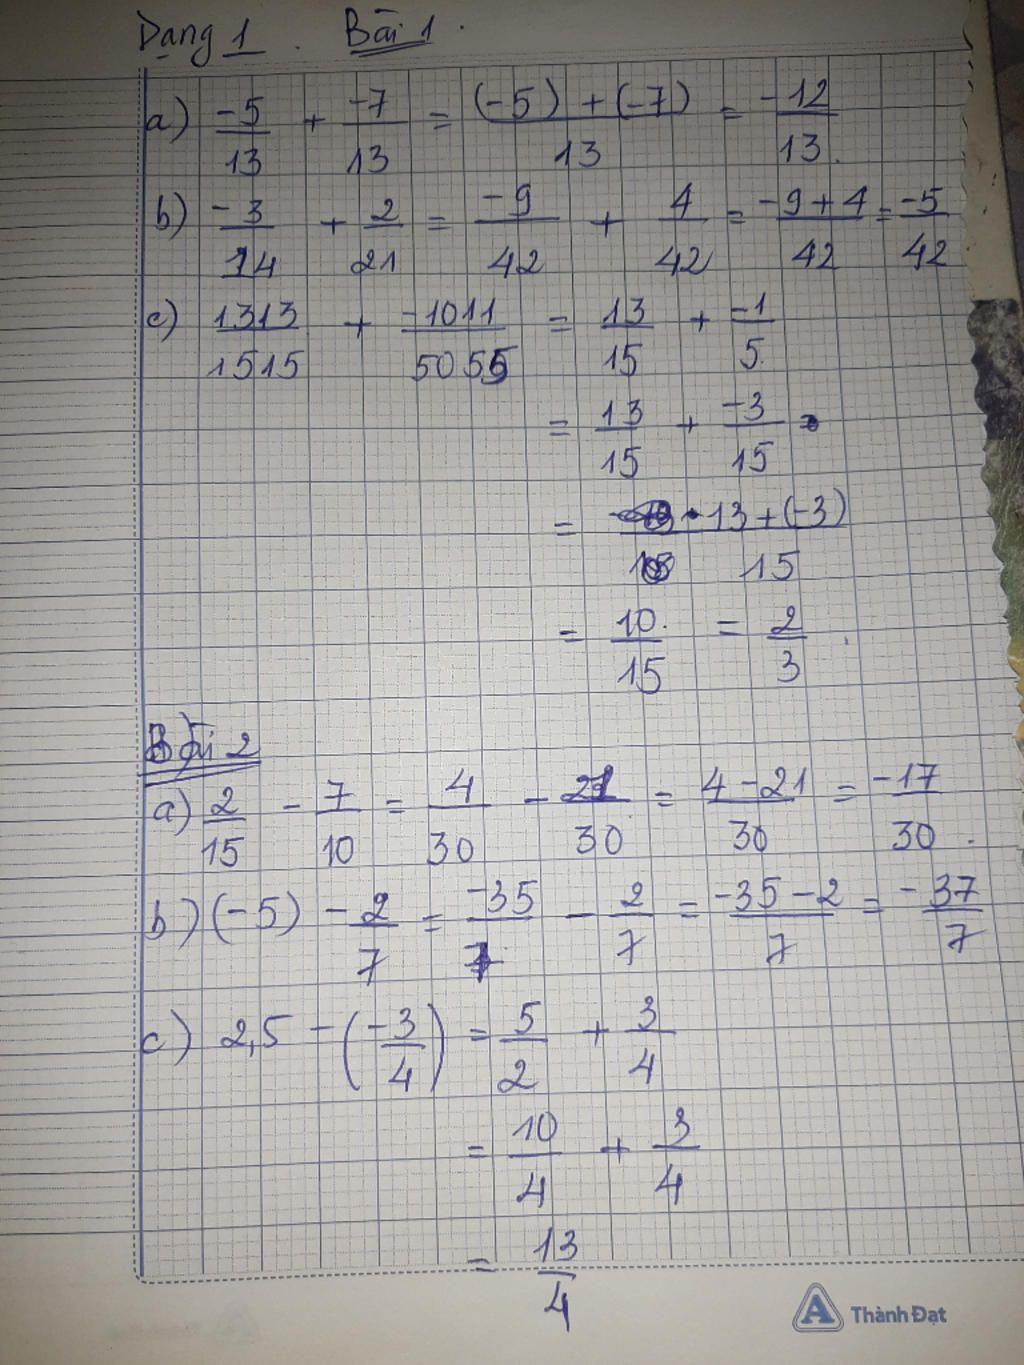 Dạng 1. Bài 1.
a) -5/13 + -7/13 = (-5) + (-7)/13 = -12/13.
b) -3/14 + 2/21 = -9/42 + 4/42 = -9+4/42 = -5/42
c) 1313/1515 + -1011/5055 = 13/15 + -1/5.
= 13/15 + -3/15
= 13+(-3)/15
= 10/15 = 2/3.
Bài 2
a) 2/15 - 7/10 = 4/30 - 21/30 = 4-21/30 = -17/30.
b) (-5) - 2/7 = -35/7 - 2/7 = -35-2/7 = -37/7
c) 2,5 - (-3/4) = 5/2 + 3/4
= 10/4 + 3/4
= 13/4
Thành Đạt